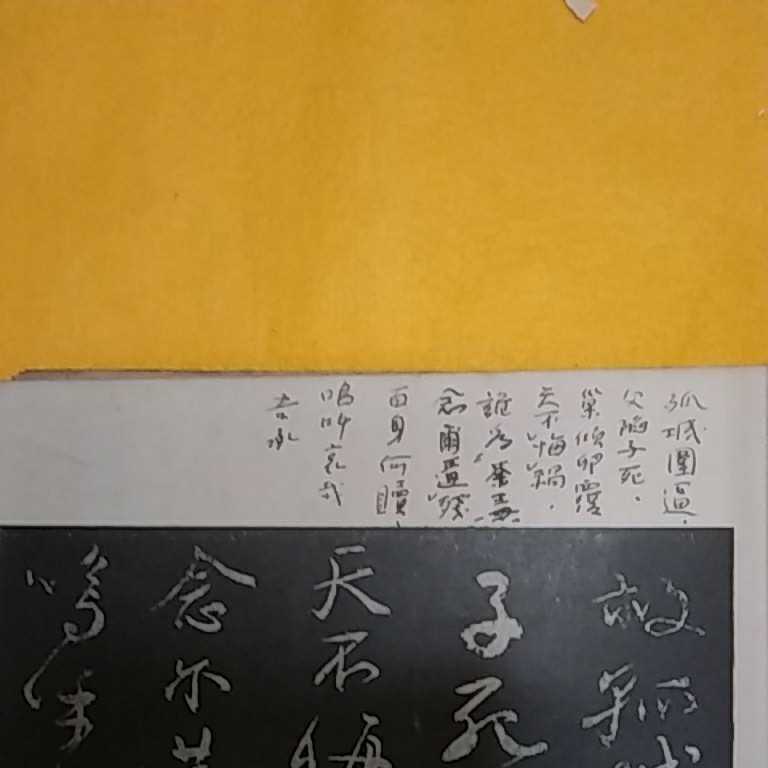 孤城圍逼,
父陷子死.
巢傾卵覆
天不悔禍.
誰為荼毒
念爾遘殘
百身何贖.
嗚呼哀哉
吾承
救孤城
子死
天不悔
念尔
嗚呼